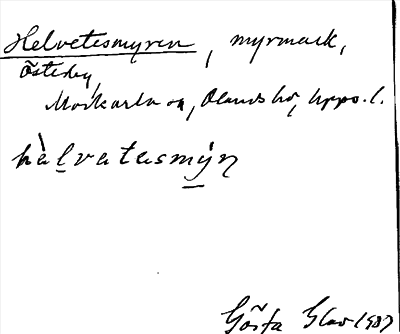 Helvetesmyren, myrmark,
Österby,
Morkarla sn, Olands hd, Upps. l.
hèlvatasmýn
Gösta